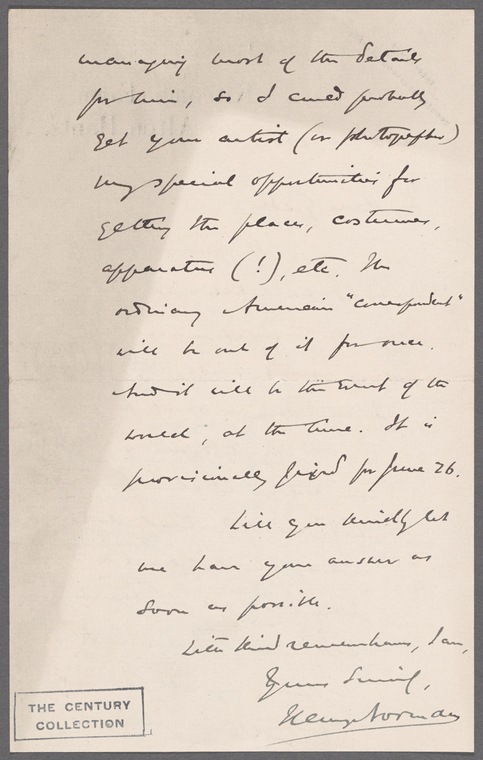 managing most of the details
for him, so I could probably
get your artist (or photographer)
very special opportunities for
getting the places, costumes,
apparatus (!), etc. The
ordinary American "correspondent"
will be out of it for once.
And it will be the event of the
world, at the time. It is
provisionally fixed for June 26.
Will you kindly let
me have your answer as
soon as possible.
With kind remembrances, I am,
Yours Sincerely,
Henry Norman
THE CENTURY
COLLECTION